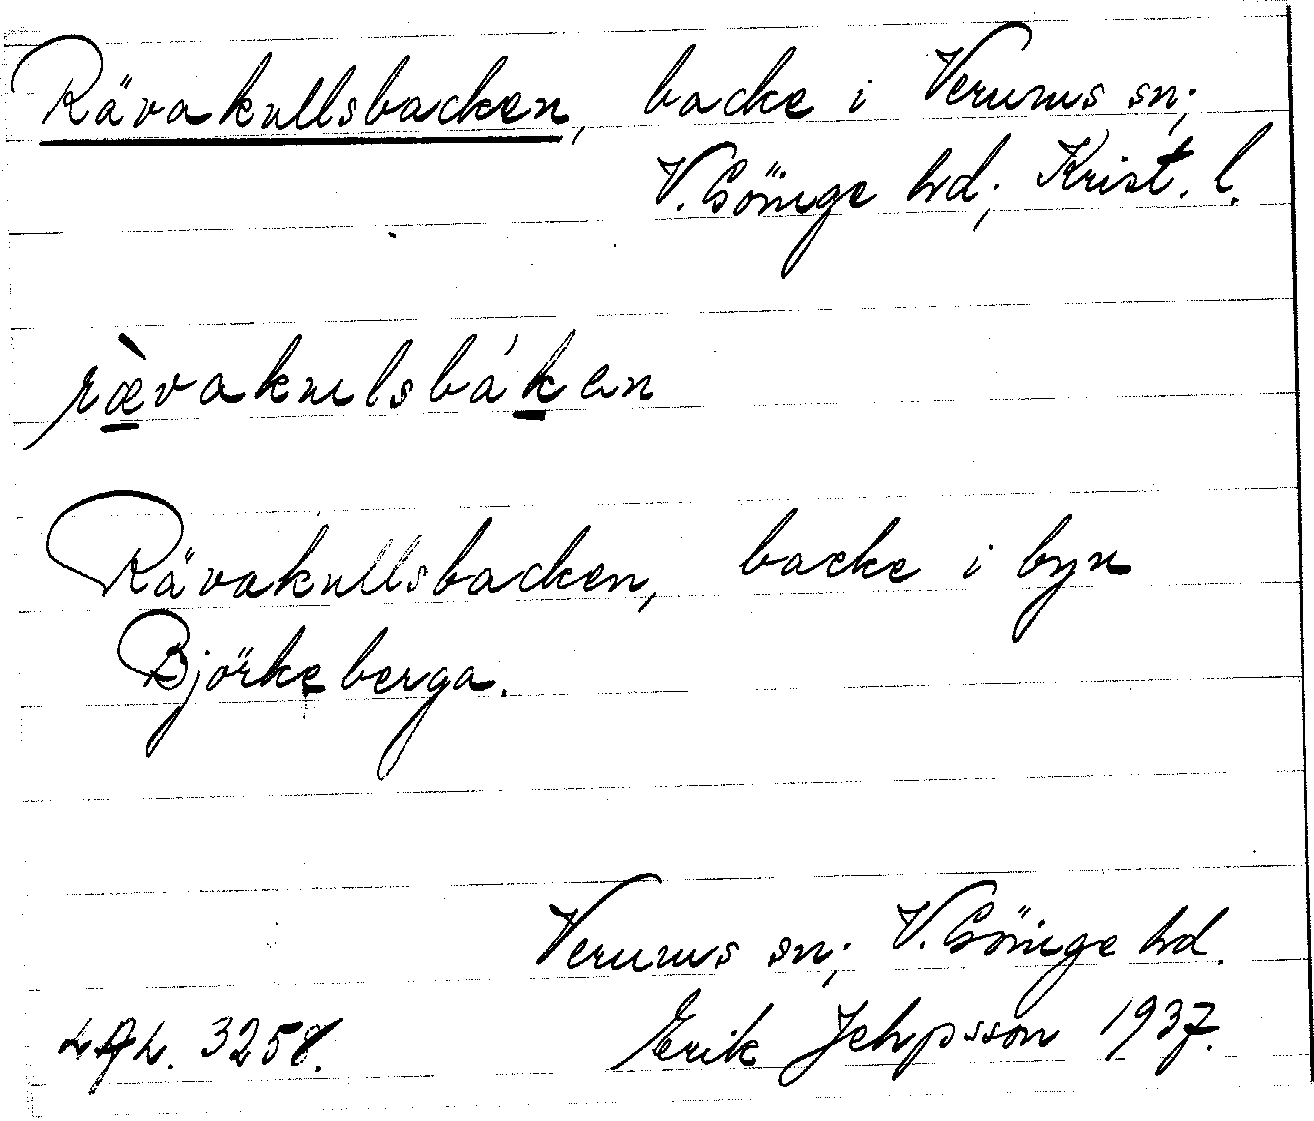 Rävakullsbacken, backe i Verums sn;
V. Göinge hd; Krist. l.
rævakulsbákan
Rävakullsbacken, backe i byn
Björkeberga.
Verums sn; V. Göinge hd.
3258. Erik Jehpsson 1937.